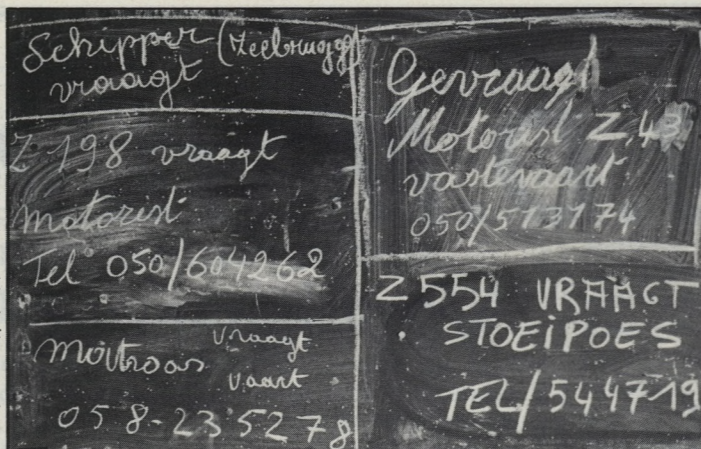 Schipper (Zeebrugge)
vraagt
Z 198 vraagt
motorist
Tel 050/604262
Matroos vraagt
vaart
058-235278
Gevraagd
Motorist Z.43
vastevaart
050/513174
Z 554 VRAAGT
STOEIPOES
TEL/544719